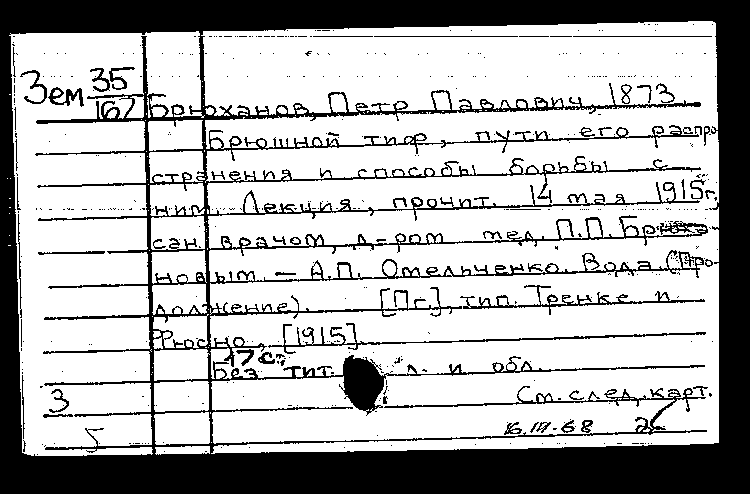 Зем 35/167 Брюханов, Петр Павлович, 1873
Брюшной тиф, пути его распро
странения и способы борьбы с
ним. Лекция, прочит. 14 мая 1915 г.
сан. врачом, д=ром мед. П.П. Брюха-
новым. — А.П. Омельченко. Вода. (Про-
должение). [Пг.], тип. Тренке и
Фюсно, [1915]
17 с.
Без тит. л. и обл.
3 См. след. карт.
5